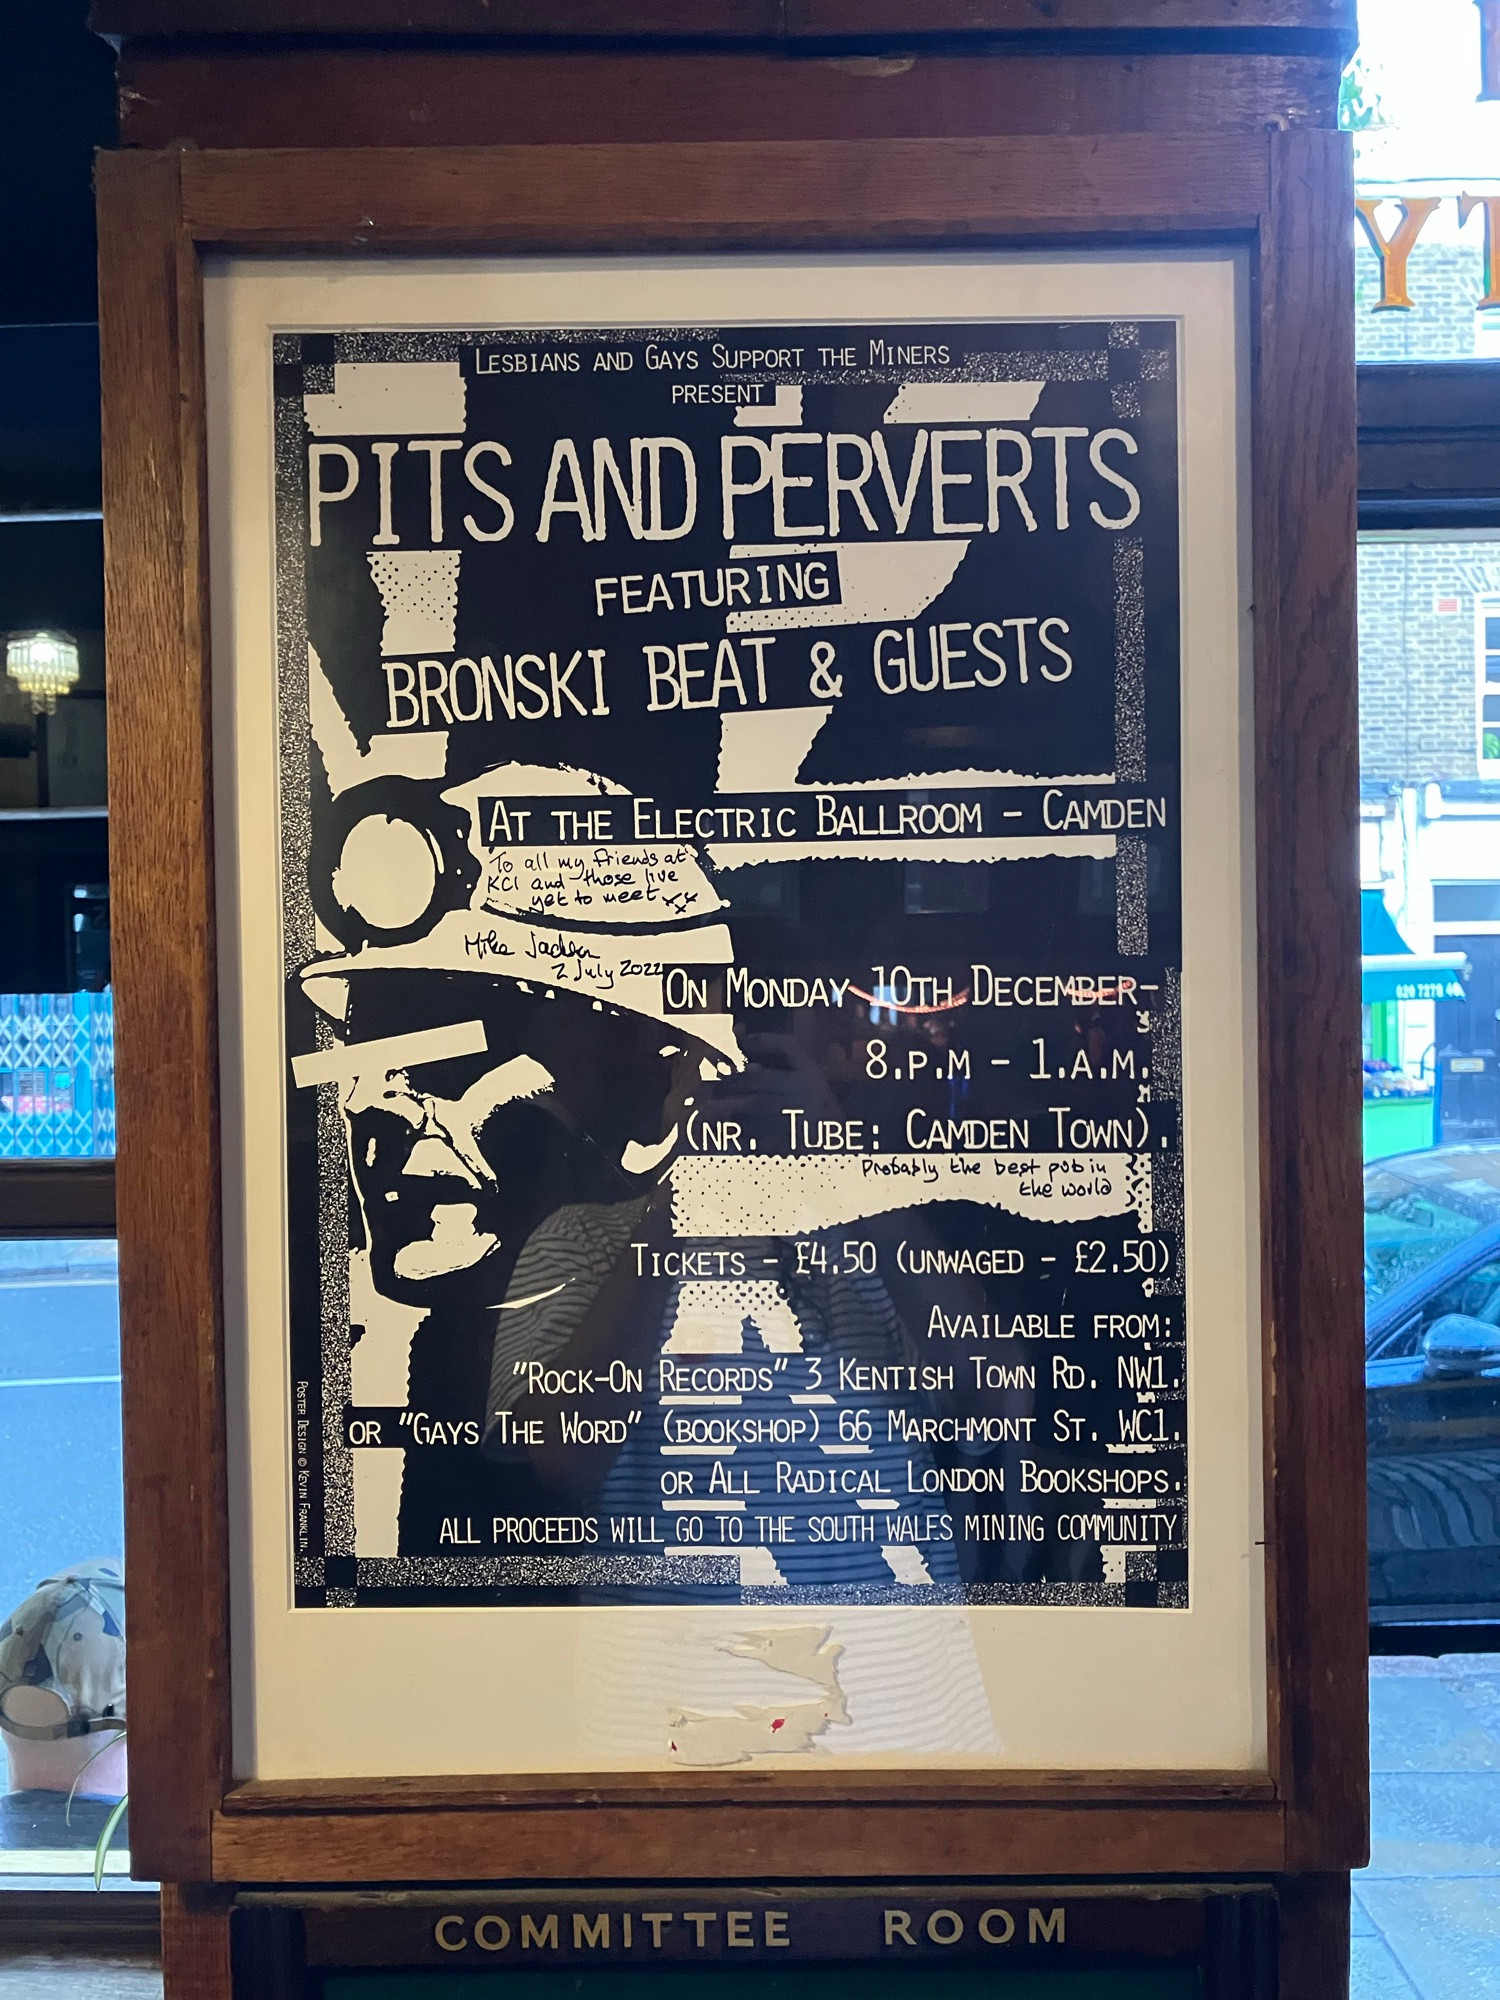 LESBIANS AND GAYS SUPPORT THE MINERS
PRESENT
PITS AND PERVERTS
FEATURING
BRONSKI BEAT & GUESTS
AT THE ELECTRIC BALLROOM - CAMDEN
To all my friends at
KCI and those I've
yet to meet xxx
Mike Jackson
2 July 2022
ON MONDAY 10TH DECEMBER-
8.P.M - 1.A.M.
(NR. TUBE: CAMDEN TOWN).
Probably the best pub in
the world
TICKETS - £4.50 (UNWAGED - £2.50)
AVAILABLE FROM:
"ROCK-ON RECORDS" 3 KENTISH TOWN RD. NW1.
OR "GAYS THE WORD" (BOOKSHOP) 66 MARCHMONT ST. WC1.
OR ALL RADICAL LONDON BOOKSHOPS.
ALL PROCEEDS WILL GO TO THE SOUTH WALES MINING COMMUNITY
POSTER DESIGN © KEVIN FRANKLIN.
COMMITTEE ROOM